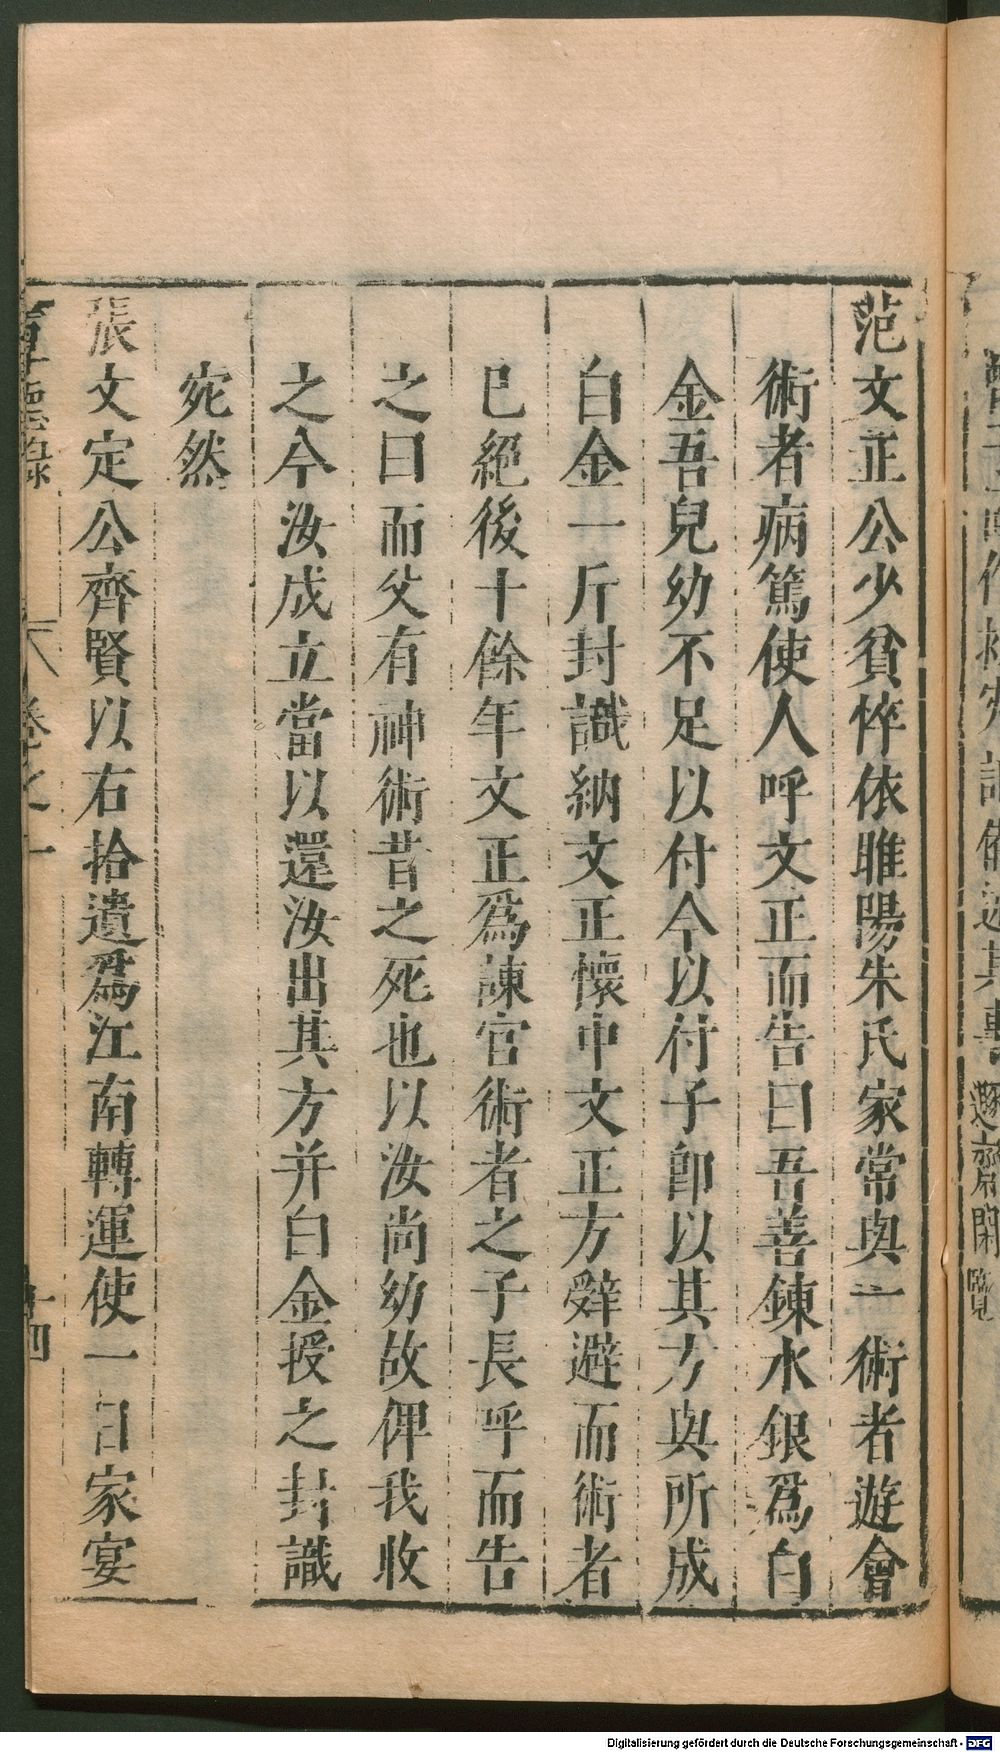 范文正公少貧悴依睢陽朱氏家常與一術者遊會
術者病篤使人呼文正而告曰吾善鍊水銀爲白
金吾兒幼不足以付今以付子卽以其方與所成
白金一斤封識納文正懷中文正方辤避而術者
已絕後十餘年文正爲諫官術者之子長呼而告
之曰而父有神術昔之死也以汝尚幼故俾我收
之今汝成立當以還汝出其方并白金授之封識
宛然
張文定公齊賢以右拾遺爲江南轉運使一日家宴
卷之一
十四
遯齋閑覽
Digitalisierung gefördert durch die Deutsche Forschungsgemeinschaft - DFG